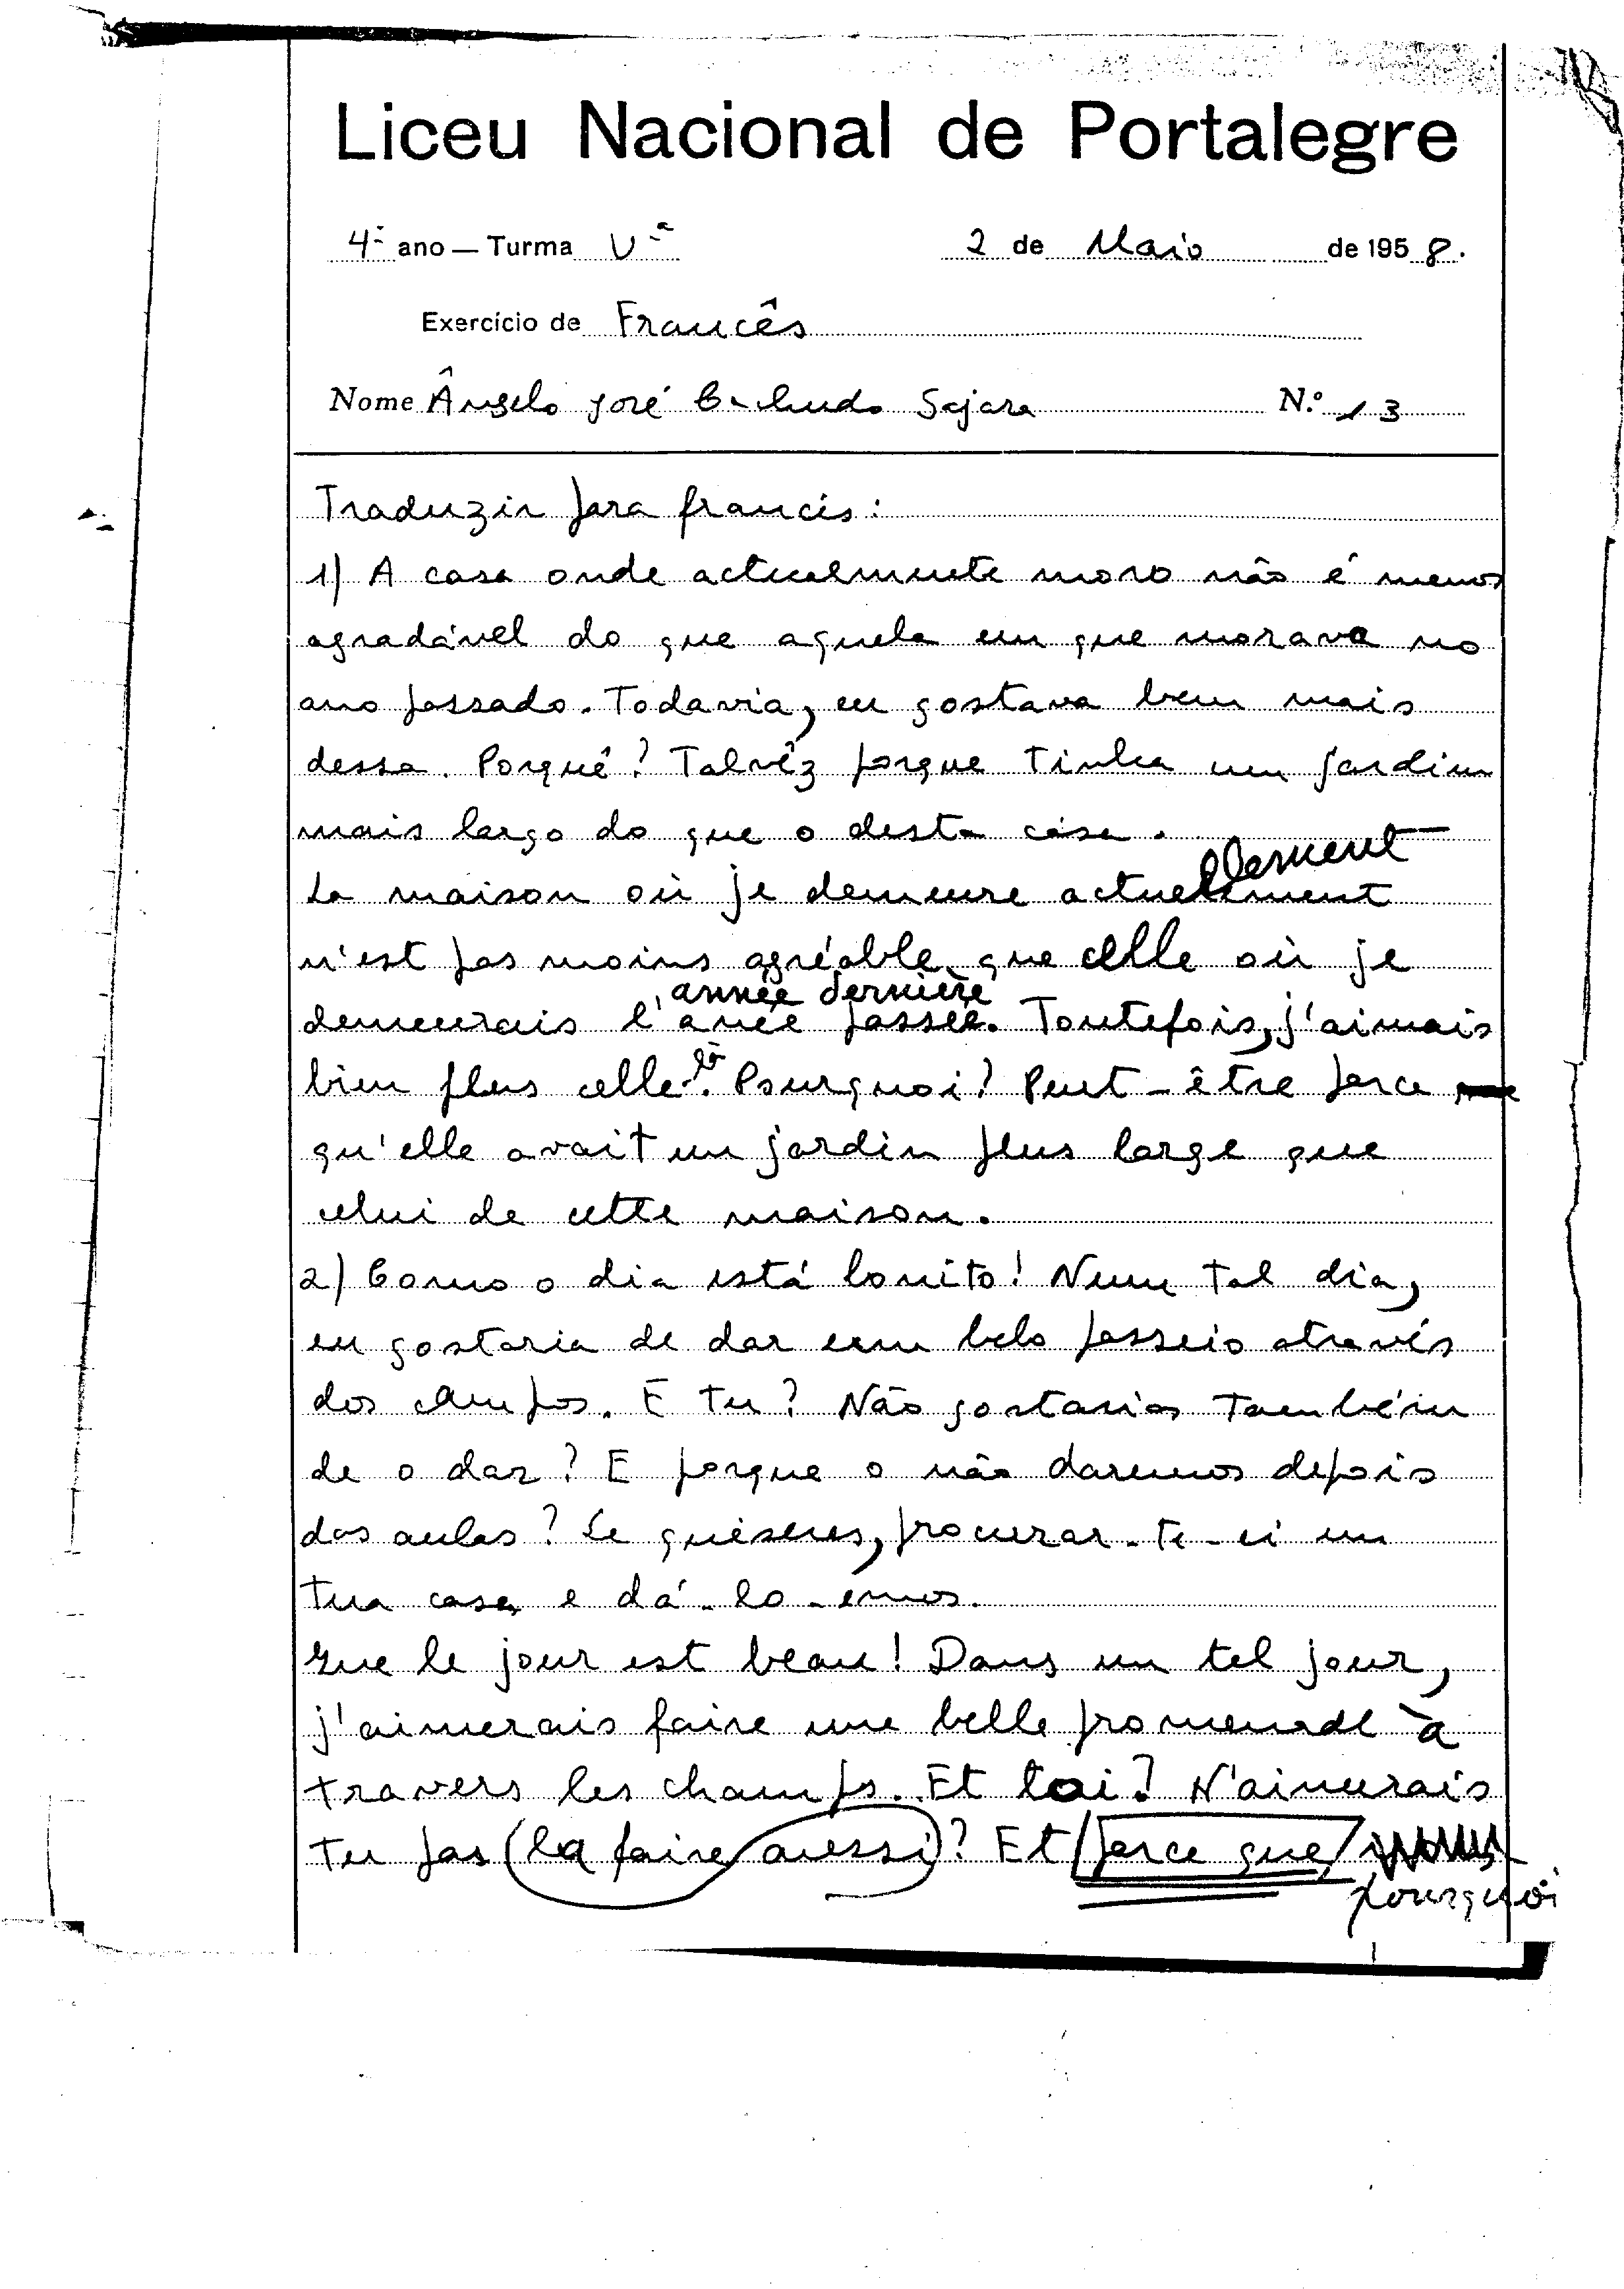 Liceu Nacional de Portalegre
4º ano — Turma V ª 2 de Maio de 1958.
Exercício de Francês
Nome Ângelo José Sajara N.º 13
Traduzir para francês:
1) A casa onde actualmente moro não é menos
agradável do que aquela em que morava no
ano passado. Todavia, eu gostava bem mais
dessa. Porquê? Talvêz porque tinha um jardim
mais largo do que o desta casa.
llement
La maison où je demeure actuellement
n'est pas moins agréable que celle où je
année dernière
demeurais l'anée passée. Toutefois, j'aimais
bien plus celle-là. Pourquoi? Peut-être parce
qu'elle avait un jardin plus large que
celui de cette maison.
2) Como o dia está bonito! Num tal dia,
eu gostaria de dar um belo passeio através
dos campos. E tu? Não gostarias também
de o dar? E porque o não daremos depois
das aulas? Se quiseres, procurar-te-ei em
tua casa e dá-lo-emos.
Que le jour est beau! Dans un tel jour,
j'aimerais faire une belle promenade à
travers les champs. Et toi? N'aimerais
tu pas (la faire aussi)? Et parce que
pourquoi